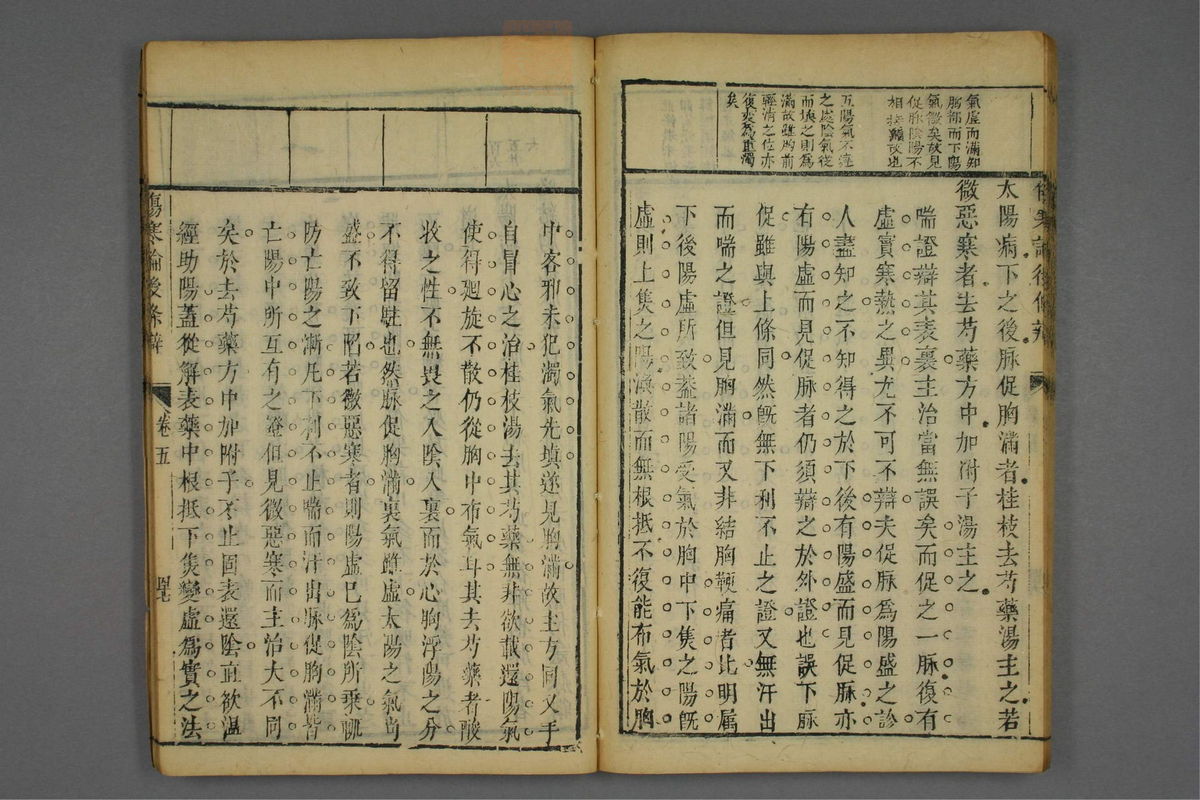 氣虛而滿知
胸部而下陽
氣微矣故見
促脉陰陽不
相接續故也
五陽氣不達
之處陰氣從
而填之則為
滿故雖胸前
輕清之位亦
復変為重濁
矣
太陽病下之後脉促胸滿者桂枝去芍藥湯主之若
微惡寒者去芍藥方中加附子湯主之
喘證辯其表裏主治當無誤矣而促之一脉復有
虛實寒熱之異尤不可不辯夫促脉爲陽盛之診
人盡知之不知得之於下後有陽盛而見促脉亦
有陽虛而見促脉者仍須辯之於外證也誤下脉
促雖與上條同然旣無下利不止之證又無汗出
而喘之證但見胸滿而又非結胸鞕痛者比明屬
下後陽虛所致葢諸陽受氣於胸中下焦之陽旣
虛則上焦之陽渙散而無根抵不復能布氣於胸
中客邪未犯濁氣先填遂見胸滿故主方同又手
自冒心之治桂枝湯去其芍藥無非欲載還陽氣
使得廻旋不散仍從胸中布氣耳其去芍藥者酸
收之性不無畏之入陰入裏而於心胸浮陽之分
不得留駐也然脉促胸滿裏氣雖虛太陽之氣尚
盛不致下陷若微惡寒者則陽虛已爲陰所乘
防亡陽之漸凡下利不止喘而汗出脉促胸滿皆
亡陽中所互有之證但見微惡寒而主治大不同
矣於去芍藥方中加附子不止固表還陰直欲溫
經助陽蓋從解表藥中根抵下焦變虛爲實之法
傷寒論後條辯
卷五